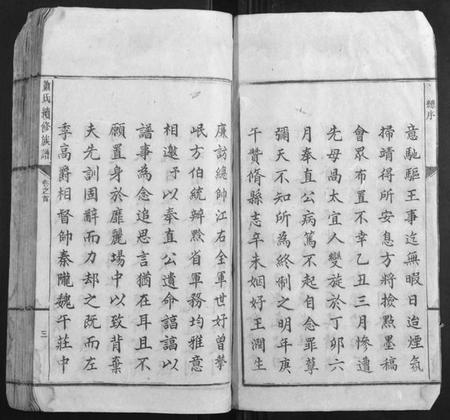 總序
意馳驅王事迄無暇日迨煙氛
掃靖得所安息方將撿點墨稿
會衆布置不幸乙丑三月慘遭
先母曷太宜人變旋於丁卯六
月奉直公病篤不起自念罪孽
彌天不知所為終制之明年庚
午贊脩縣志辛未姻好王澗生
廉訪總帥江右全軍世好曾摯
岷方伯統辦黔省軍務均雅意
相邀予以奉直公遺命諄諄以
譜事為念追思言猶在耳且不
願置身於靡麗場中以致背棄
夫先訓固辭而力却之既而左
季高爵相督帥秦隴魏午莊中
蕭氏續修族譜
卷之首
三